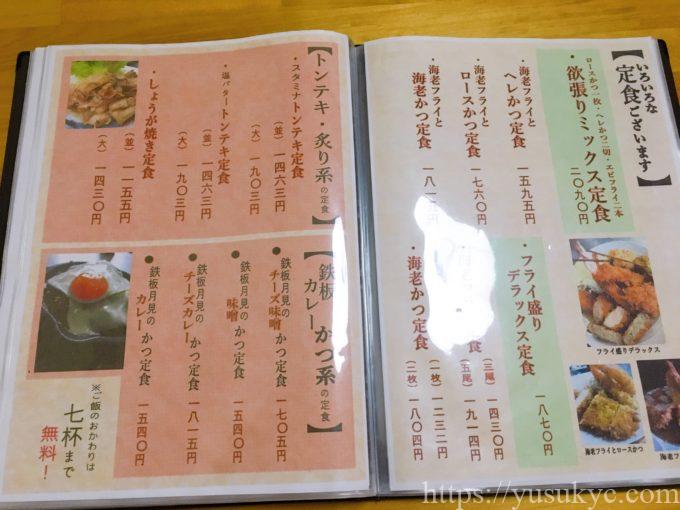 【いろいろな
定食ございます】
・欲張りミックス定食
ロースかつ一枚・ヘレかつ二切・エビフライ二本
二〇九〇円
・海老フライと
ヘレかつ定食
一五九五円
・海老フライと
ロースかつ定食
一七六〇円
・海老フライと
海老かつ定食
・フライ盛り
デラックス定食
一八七〇円
(三尾) 一四三〇円
(五尾) 一九一四円
・海老かつ定食
(一枚) 一二三二円
(二枚) 一八〇四円
フライ盛りデラックス
海老フライとロースかつ
【トンテキ・炙り系の定食】
・スタミナトンテキ定食
(並) 一四六三円
(大) 一九〇三円
・塩バタートンテキ定食
(並) 一四六三円
(大) 一九〇三円
・しょうが焼き定食
(並) 一一五五円
(大) 一四三〇円
【鉄板カレーかつ系の定食】
●鉄板月見の
チーズ味噌かつ定食
一七〇五円
●鉄板月見の
味噌かつ定食
一五四〇円
●鉄板月見の
チーズカレーかつ定食
一八一五円
●鉄板月見の
カレーかつ定食
一五四〇円
※ご飯のおかわりは
七杯まで
無料!
https://yusukye.com